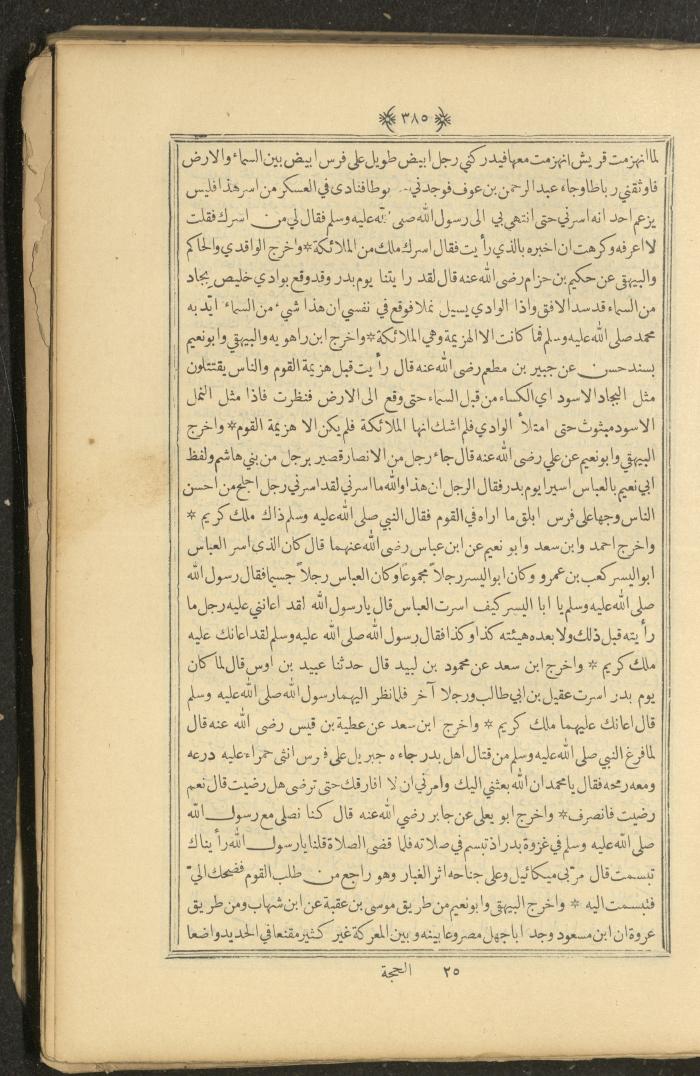 ٣٨٥
لما انهزمت قريش انهزمت معها فيدركني رجل ابيض طويل على فرس ابيض بين السماء والارض
فاوثقني رباطا وجاء عبد الرحمن بن عوف فوجدني بوطا فنادى في العسكر من اسر هذا فليس
يزعم احد انه اسرني حتى انتهي بي الى رسول الله صلى الله عليه وسلم فقال لي من اسرك فقلت
لا اعرفه وكرهت ان اخبره بالذي رأيت فقال اسرك ملك من الملائكة * واخرج الواقدي والحاكم
والبيهقي عن حكيم بن حزام رضى الله عنه قال لقد رايتنا يوم بدر وقد وقع بوادي خليص بجاد
من السماء قد سد الافق واذا الوادي يسيل نملا فوقع في نفسي ان هذا شيء من السماء ايّد به
محمد صلى الله عليه وسلم فما كانت الا الهزيمة وهي الملائكة * واخرج ابن راهويه والبيهقي وابو نعيم
بسند حسن عن جبير بن مطعم رضى الله عنه قال رأيت قبل هزيمة القوم والناس يقتتلون
مثل البجاد الاسود اي الكساء من قبل السماء حتى وقع الى الارض فنظرت فاذا مثل النمل
الاسود مبثوث حتى امتلأ الوادي فلم اشك انها الملائكة فلم يكن الا هزيمة القوم * واخرج
البيهقي وابو نعيم عن علي رضى الله عنه قال جاء رجل من الانصار قصير برجل من بني هاشم ولفظ
ابي نعيم بالعباس اسيرا يوم بدر فقال الرجل ان هذا والله ما اسرني لقد اسرني رجل اجلح من احسن
الناس وجها على فرس ابلق ما اراه في القوم فقال النبي صلى الله عليه وسلم ذاك ملك كريم *
واخرج احمد وابن سعد وابو نعيم عن ابن عباس رضى الله عنهما قال كان الذى اسر العباس
ابو اليسر كعب بن عمرو وكان ابو اليسر رجلاً مجموعًا وكان العباس رجلاً جسيما فقال رسول الله
صلى الله عليه وسلم يا ابا اليسر كيف اسرت العباس قال يا رسول الله لقد اعانني عليه رجل ما
رأيته قبل ذلك ولا بعده هيئته كذا وكذا فقال رسول الله صلى الله عليه وسلم لقد اعانك عليه
ملك كريم * واخرج ابن سعد عن محمود بن لبيد قال حدثنا عبيد بن اوس قال لما كان
يوم بدر اسرت عقيل بن ابي طالب ورجلا آخر فلما نظر اليهما رسول الله صلى الله عليه وسلم
قال اعانك عليهما ملك كريم * واخرج ابن سعد عن عطية بن قيس رضى الله عنه قال
لما فرغ النبي صلى الله عليه وسلم من قتال اهل بدر جاءه جبريل على فرس انثى حمراء عليه درعه
ومعه رمحه فقال يا محمد ان الله بعثني اليك وامرني ان لا افارقك حتى ترضى هل رضيت قال نعم
رضيت فانصرف * واخرج ابو يعلى عن جابر رضي الله عنه قال كنا نصلي مع رسول الله
صلى الله عليه وسلم في غزوة بدر اذ تبسم في صلاته فلما قضى الصلاة قلنا يا رسول الله رأيناك
تبسمت قال مرّ بي ميكائيل وعلى جناحه اثر الغبار وهو راجع من طلب القوم فضحك اليّ
فتبسمت اليه * واخرج البيهقي وابو نعيم من طريق موسى بن عقبة عن ابن شهاب ومن طريق
عروة ان ابن مسعود وجد ابا جهل مصروعا بينه وبين المعركة غير كثير مقنعا في الحديد واضعا
٢٥ الحجة